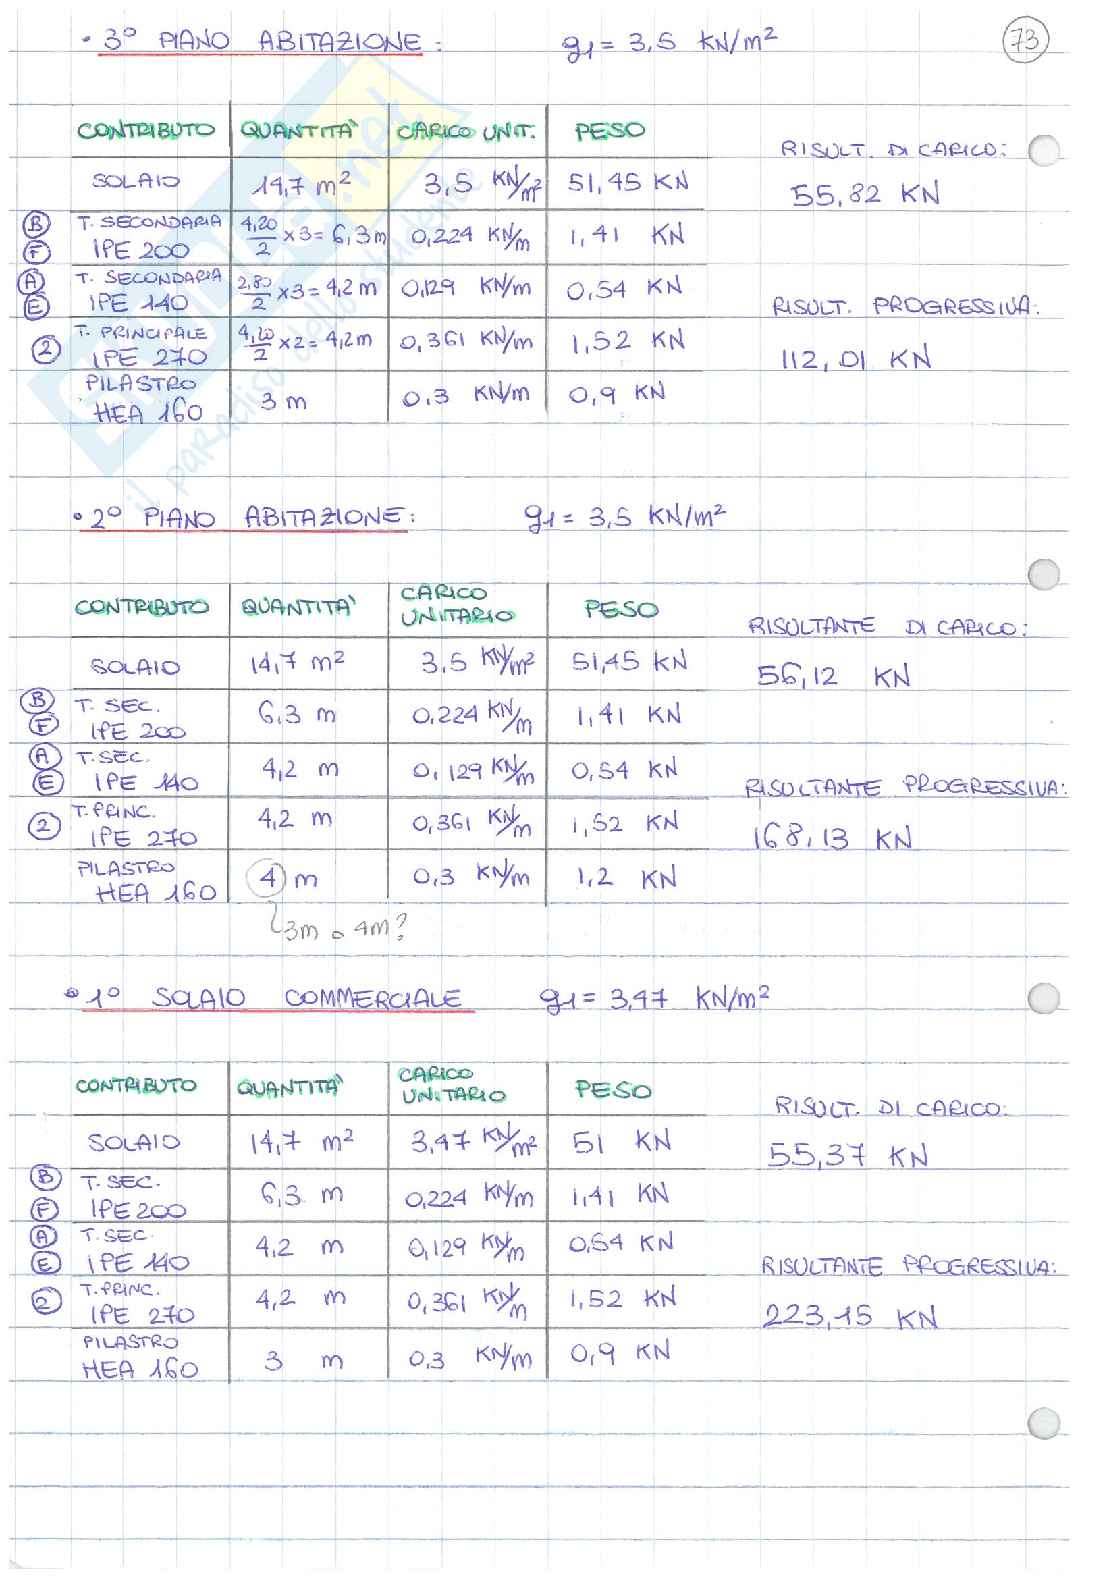 • 3° PIANO ABITAZIONE: g1 = 3,5 KN/m² 73
CONTRIBUTO QUANTITA' CARICO UNIT. PESO
RISULT. DI CARICO:
SOLAIO 14,7 m² 3,5 KN/m² 51,45 KN
55,82 KN
B F T. SECONDARIA IPE 200 4,20/2 x3 = 6,3 m 0,224 KN/m 1,41 KN
A E T. SECONDARIA IPE 140 2,80/2 x3 = 4,2 m 0,129 KN/m 0,54 KN
RISULT. PROGRESSIVA:
2 T. PRINCIPALE IPE 270 4,20/2 x2 = 4,2m 0,361 KN/m 1,52 KN
112,01 KN
PILASTRO HEA 160 3 m 0,3 KN/m 0,9 KN
.net
il paradiso dello studente
• 2° PIANO ABITAZIONE: g1 = 3,5 KN/m²
CONTRIBUTO QUANTITA' CARICO UNITARIO PESO
RISULTANTE DI CARICO:
SOLAIO 14,7 m² 3,5 KN/m² 51,45 KN
56,12 KN
B F T. SEC. IPE 200 6,3 m 0,224 KN/m 1,41 KN
A E T. SEC. IPE 140 4,2 m 0,129 KN/m 0,54 KN
RISULTANTE PROGRESSIVA:
2 T. PRINC. IPE 270 4,2 m 0,361 KN/m 1,52 KN
168,13 KN
PILASTRO HEA 160 4 m 0,3 KN/m 1,2 KN
3m o 4m?
• 1° SOLAIO COMMERCIALE g1 = 3,47 KN/m²
CONTRIBUTO QUANTITA' CARICO UNITARIO PESO
RISULT. DI CARICO:
SOLAIO 14,7 m² 3,47 KN/m² 51 KN
55,37 KN
B F T. SEC. IPE 200 6,3 m 0,224 KN/m 1,41 KN
A E T. SEC. IPE 140 4,2 m 0,129 KN/m 0,54 KN
RISULTANTE PROGRESSIVA:
2 T. PRINC. IPE 270 4,2 m 0,361 KN/m 1,52 KN
223,15 KN
PILASTRO HEA 160 3 m 0,3 KN/m 0,9 KN